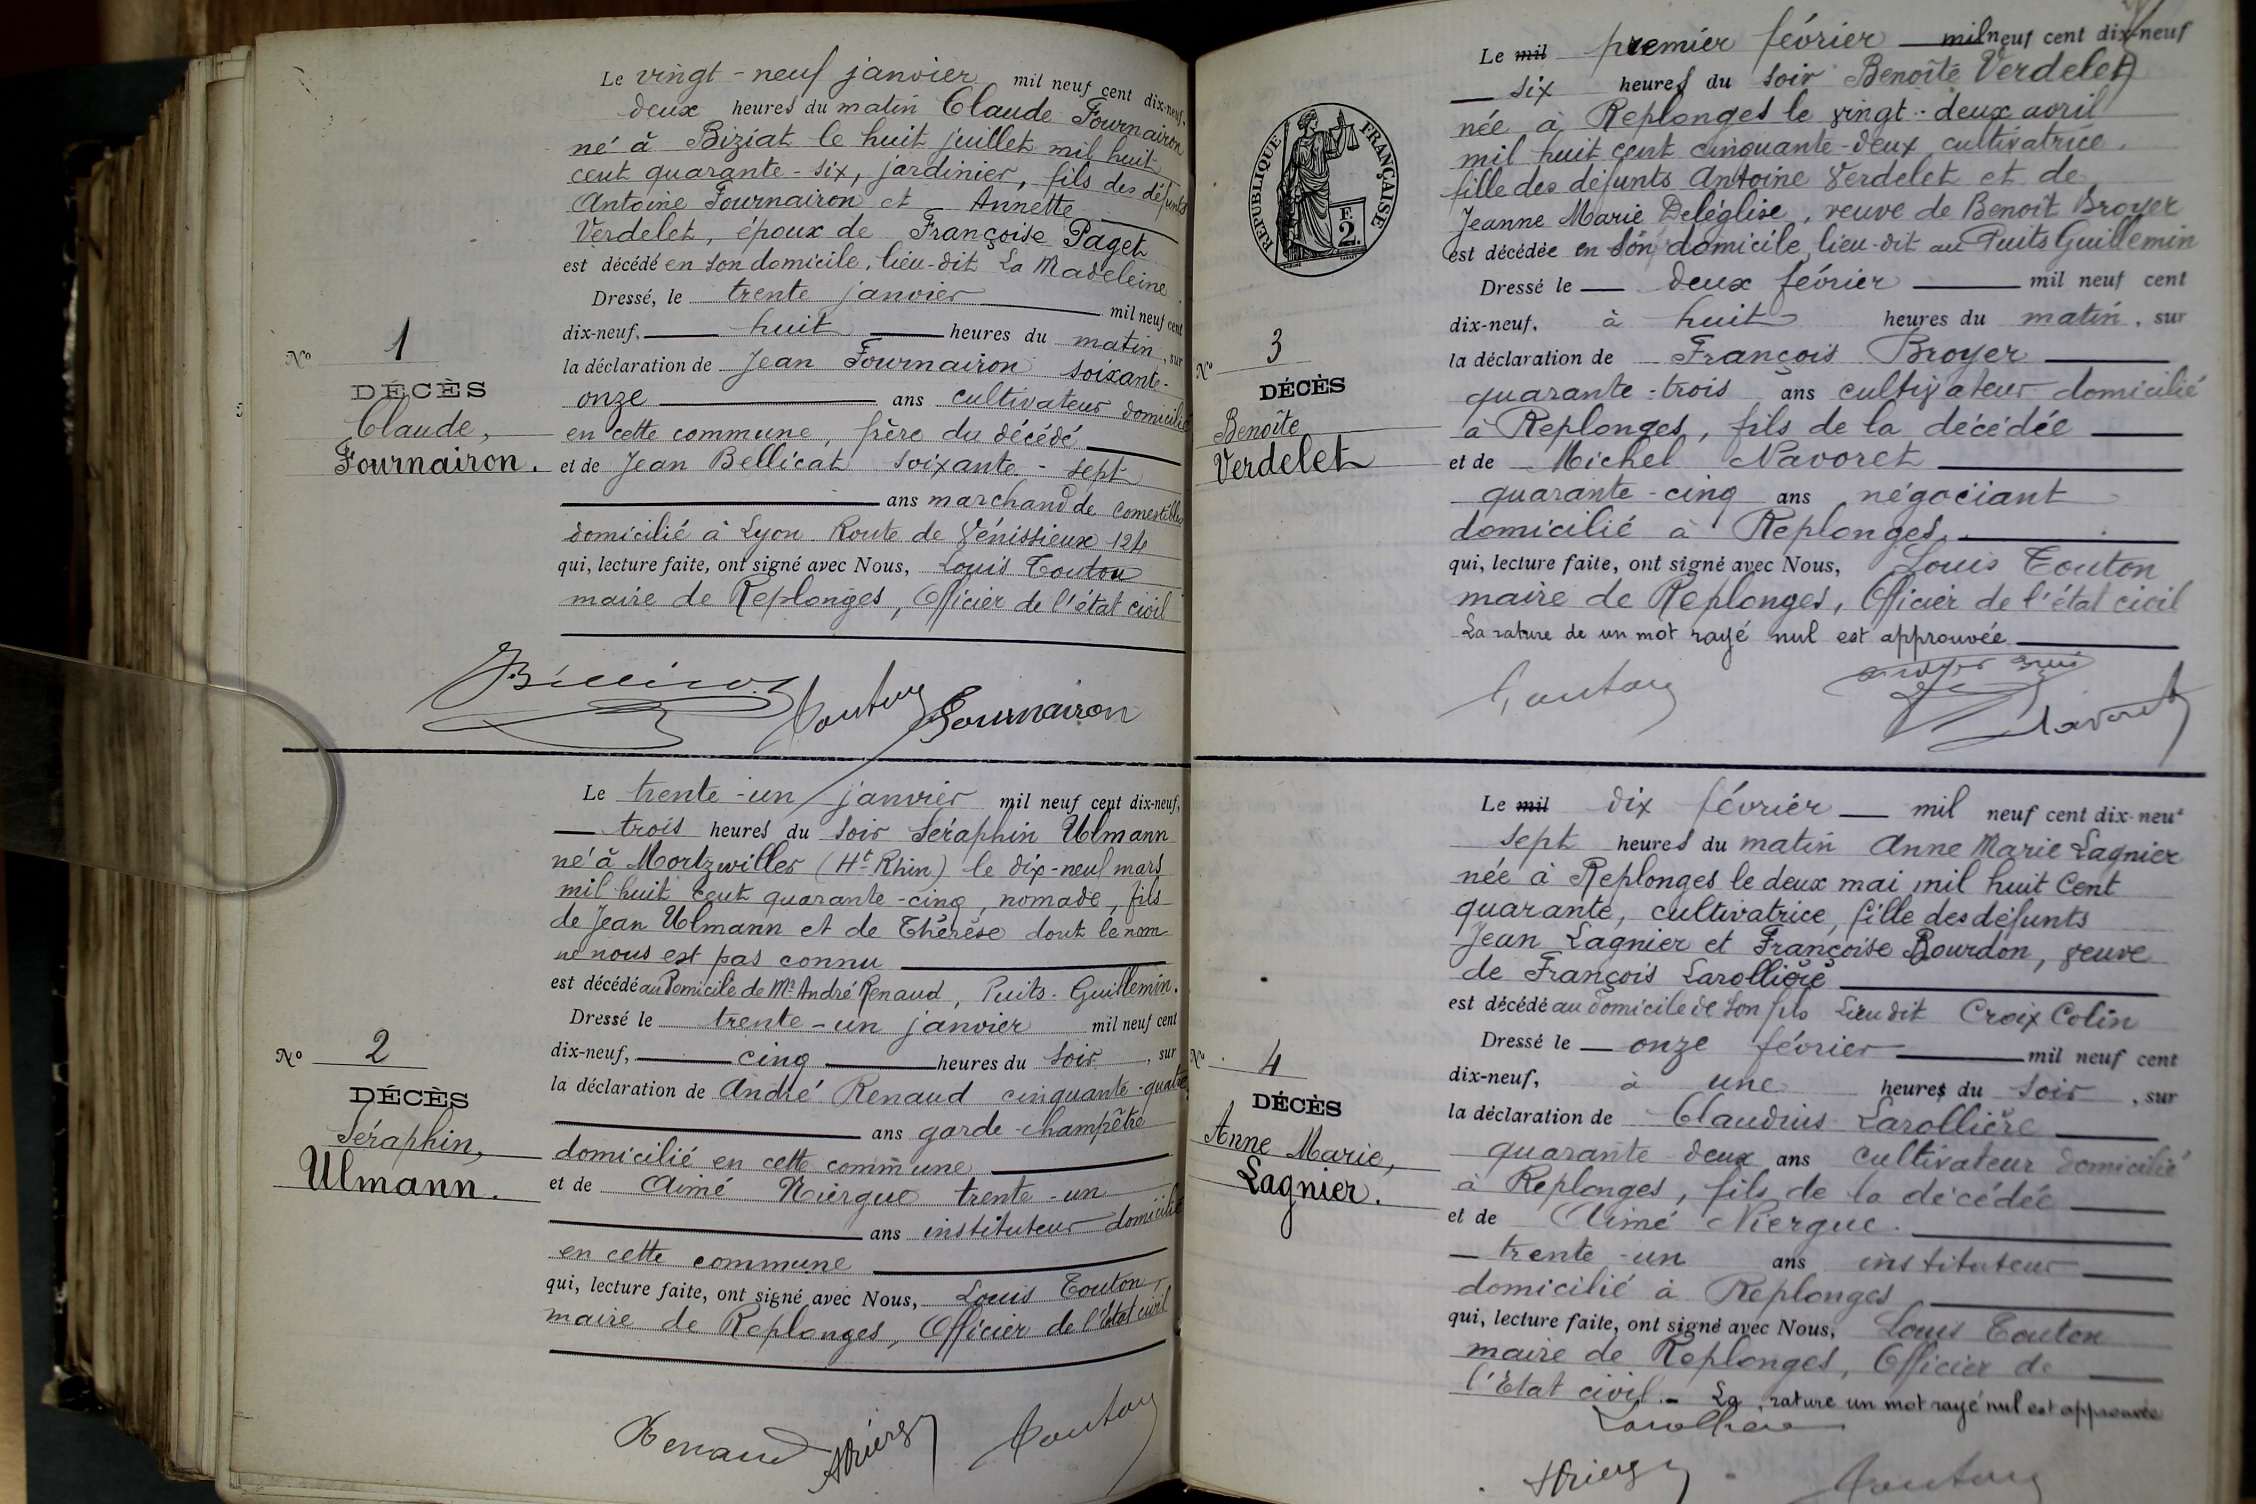 Le vingt-neuf janvier mil neuf cent dix-neuf.
deux heures du matin Claude Fournairon
né à Biziat le huit juillet mil huit
cent quarante-six, jardinier, fils des défunts
Antoine Fournairon et Annette
Verdelet, époux de Françoise Paget
est décédé en son domicile, lieu-dit La Madeleine.
Dressé, le trente janvier mil neuf cent
dix-neuf, huit heures du matin, sur
la déclaration de Jean Fournairon soixante-
onze ans cultivateur domicilié
en cette commune, frère du décédé
et de Jean Bellicat soixante-sept
ans marchand de comestibles
domicilié à Lyon Route de Vénissieux 124
qui, lecture faite, ont signé avec Nous, Louis Touton
maire de Replonges, Officier de l'état civil
No 1
DÉCÈS
Claude,
Fournairon.
Touton Fournairon
Le trente-un janvier mil neuf cent dix-neuf,
trois heures du soir Séraphin Ulmann
né à Mortzwiller (Ht-Rhin) le dix-neuf mars
mil huit cent quarante-cinq, nomade, fils
de Jean Ulmann et de Thérèse dont le nom
ne nous est pas connu
est décédé au Domicile de Mr André Renaud, Puits-Guillemin.
Dressé le trente-un janvier mil neuf cent
dix-neuf, cinq heures du soir, sur
la déclaration de André Renaud cinquante-quatre
ans garde-champêtre
domicilié en cette commune
et de Aimé Niergue trente-un
ans instituteur domicilié
en cette commune
qui, lecture faite, ont signé avec Nous, Louis Touton,
maire de Replonges, Officier de l'état civil
No 2
DÉCÈS
Séraphin,
Ulmann.
Renaud Touton
Le mil premier février mil neuf cent dix-neuf
six heures du soir Benoîte Verdelet
née à Replonges le vingt-deux avril
mil huit cent cinquante-deux, cultivatrice,
fille des défunts Antoine Verdelet et de
Jeanne Marie Deléglise, veuve de Benoît Broyer
est décédée en son domicile, lieu-dit au Puits Guillemin
Dressé le deux février mil neuf cent
dix-neuf, à huit heures du matin, sur
la déclaration de François Broyer
quarante-trois ans cultivateur domicilié
à Replonges, fils de la décédée
et de Michel Navoret
quarante-cinq ans négociant
domicilié à Replonges,
qui, lecture faite, ont signé avec Nous, Louis Touton
maire de Replonges, Officier de l'état civil
La rature de un mot rayé nul est approuvée
RÉPUBLIQUE FRANÇAISE
F.
2.
No 3
DÉCÈS
Benoîte
Verdelet
Touton
Navoret
Le mil dix février mil neuf cent dix-neuf
sept heures du matin Anne Marie Lagnier
née à Replonges le deux mai mil huit cent
quarante, cultivatrice, fille des défunts
Jean Lagnier et Françoise Bourdon, veuve
de François Larollière
est décédé au domicile de son fils lieu dit Croix Colin
Dressé le onze février mil neuf cent
dix-neuf, à une heures du soir, sur
la déclaration de Claudius Larollière
quarante-deux ans cultivateur domicilié
à Replonges, fils de la décédée
et de Aimé Niergue.
trente-un ans instituteur
domicilié à Replonges
qui, lecture faite, ont signé avec Nous, Louis Touton
maire de Replonges, Officier de
l'Etat civil.- La rature un mot rayé nul est approuvée
No 4
DÉCÈS
Anne Marie,
Lagnier.
Larollière
Touton